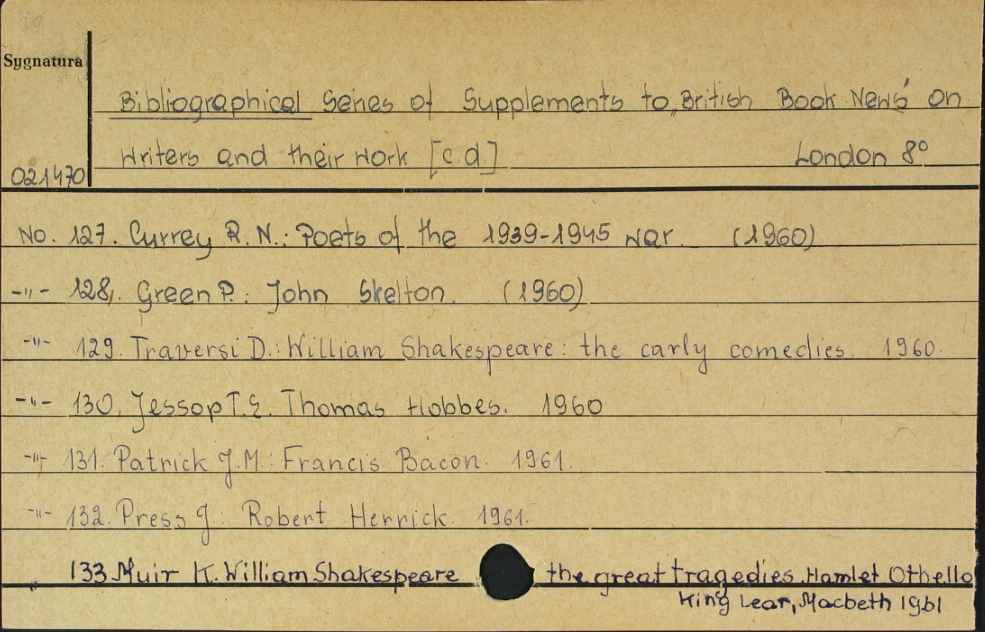 Sygnatura
Bibliographical Series of Supplements to „British Book News" on
Writers and their Work [c.d] London 8°
021470
No. 127. Currey R. N.: Poets of the 1939-1945 war. (1960)
-"- 128. Green P.: John Skelton. (1960)
-"- 129. Traversi D.: William Shakespeare: the carly comedies. 1960.
-"- 130. Jessop T.E. Thomas Hobbes. 1960
-"- 131. Patrick J.M: Francis Bacon. 1961.
-"- 132. Press J: Robert Herrick. 1961.
" 133 Muir K. William Shakespeare the great tragedies Hamlet Othello
King Lear, Macbeth 1961